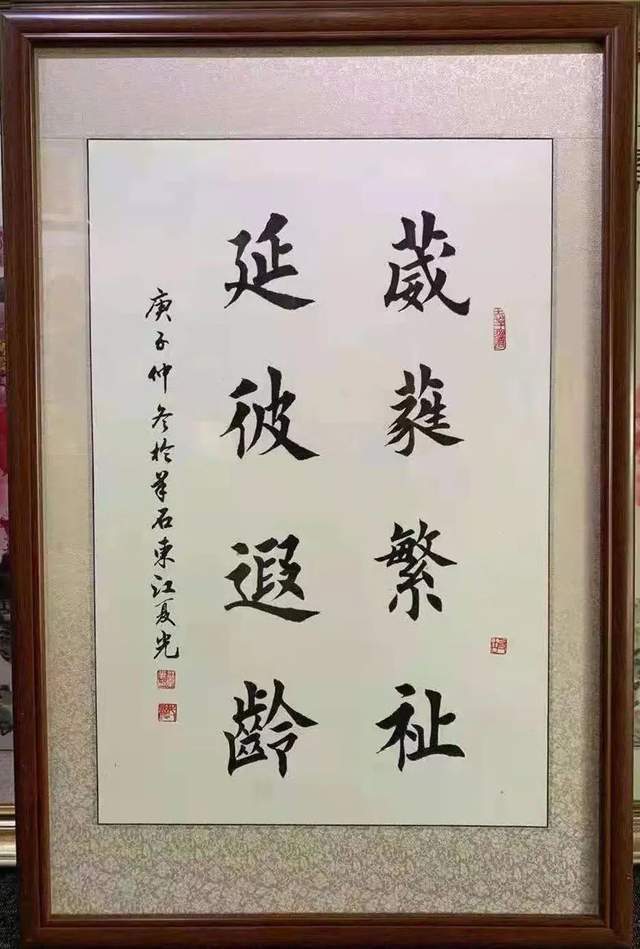 葳蕤繁祉
延彼遐齡
庚子仲冬於羊石東江夏光